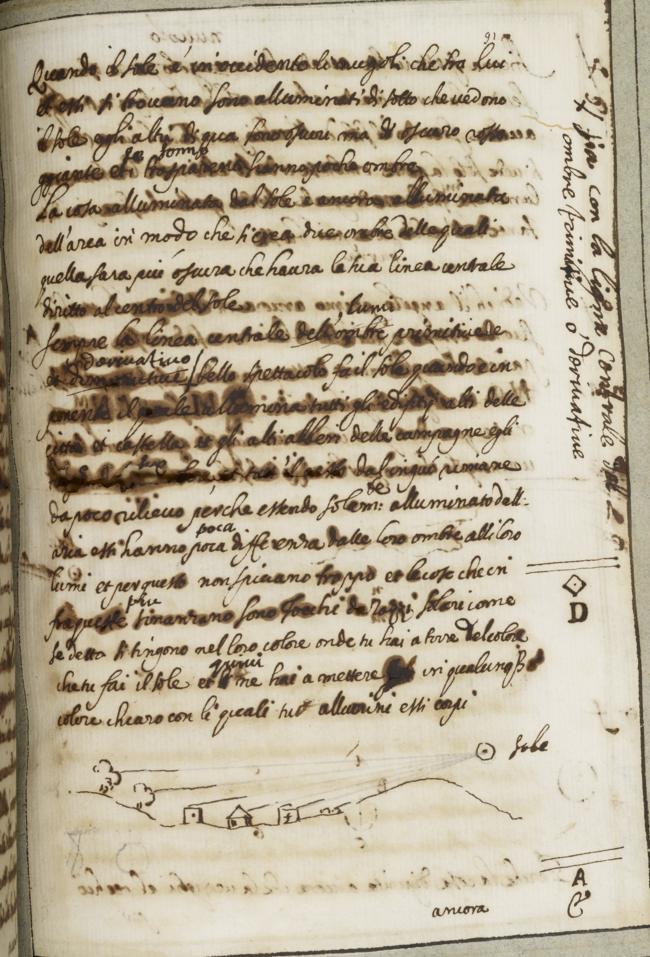 91
Quando il sole è in occidente li nugoli che fra lui
et essi si trovano sono alluminati di sotto che vedono
il sole e gli altri di qua sono oscuri ma di oscuro rosse
ggiante et li trasparenti hanno poche ombre
La cosa alluminata dal sole è ancora alluminata
dell'area in modo che si crea due ombre delle quali
quella sara piu oscura che haura la sua linea centrale
diritto al centro del sole
sempre la linea centrale dell'ombre primitive
lumi
derivativo
et bello spettacolo fa il sole quando è in
ponente il quale allumina tutti gli edifitij alti delle
citta et castella et gli alti alberi delle campagne e gli
et tutto il resto da ingiu rimane
da poco rilievo perche essendo solam: alluminato dell-
te
aria essi hanno poca differenza dalle loro ombre alli loro
poca
lumi et per questo non spiccano troppo et le cose che in
fra queste rimanzano sono tochi da razzi solari come
piu
se detto si tingono nel loro colore onde tu hai a torre del colore
che tu fai il sole et ne hai a mettere in qualunq3
quivi
colore chiaro con li quali tu allumini essi corpi
sole
ancora
fia con la linea centrale del
ombre primitive o derivative
D
A